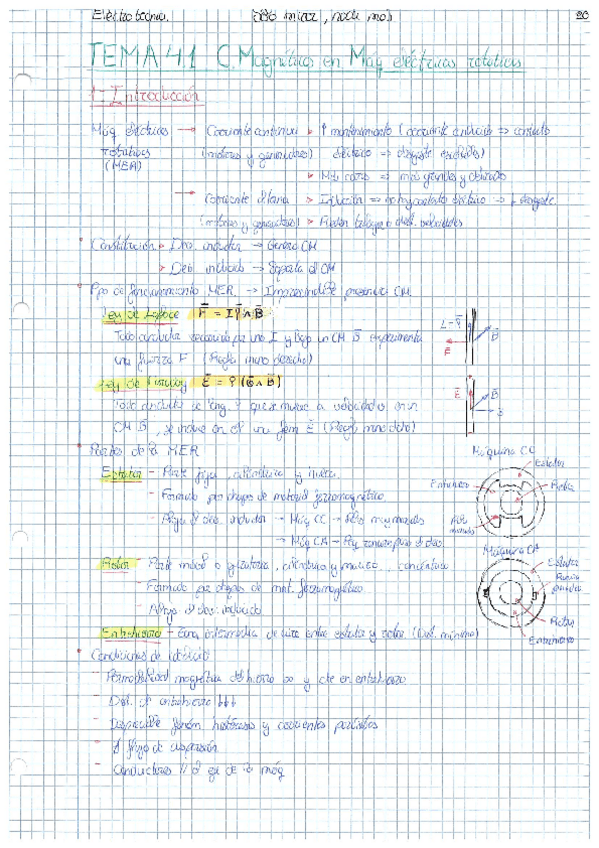 Electrotecnia. (solo mirar, nada más) 20
TEMA 4.1 C. Magnéticos en Máq eléctricas rotativas
1- Introducción
Máq eléctricas → Corriente continua ▸ ↑ mantenimiento (corriente continua ⇒ contacto
rotativas (motores y generadores) eléctrico ⇒ desgaste escobillas)
(MER) ▸ Más caros ⇒ más grandes y
→ Corriente alterna ▸ Inducción ⇒ no hay contacto eléctrico → ↓ desgaste
(motores y generadores) ▸ velocidades
Constitución ▸ Dev. inductor → Genera CM
▸ Dev. inducido → Soporta el CM
Ppo de funcionamiento MER → Imprescindible presencia CM
Ley de Laplace F = I l ∧ B
Todo conductor recorrido por una I y bajo un CM B experimenta
una fuerza F (Regla mano derecha)
Ley de Faraday E = l (v ∧ B)
Todo conductor de long. l que se mueve a velocidad v en un
CM B, se induce en él una fem E (Regla mano dcha)
Partes de la MER
Estator - Parte fija, cilíndrica y hueca.
- Formado por chapas de material ferromagnético.
- Aloja el dev. inductor → Máq CC → Polos muy marcados
→ Máq CA →
Rotor - Parte móvil o giratoria, cilíndrica y maciza, concéntrica
- Formado por chapas de mat. ferromagnético
- Aloja el dev. inducido
Entrehierro - Zona intermedia de aire entre estator y rotor. (Dist. mínima)
Condiciones de idealidad
- Permeabilidad magnética del hierro ∞ y cte en entrehierro
- Dist. del entrehierro ↓↓↓
- Despreciable fenóm. histéresis y corrientes parásitas
- flujo de dispersión
- Conductores // al eje de la máq
F
B
E
B
Máquina CC
Estator
Entrehierro
Rotor
Polo
marcado
Máquina CA
Estator
Rotor
Entrehierro